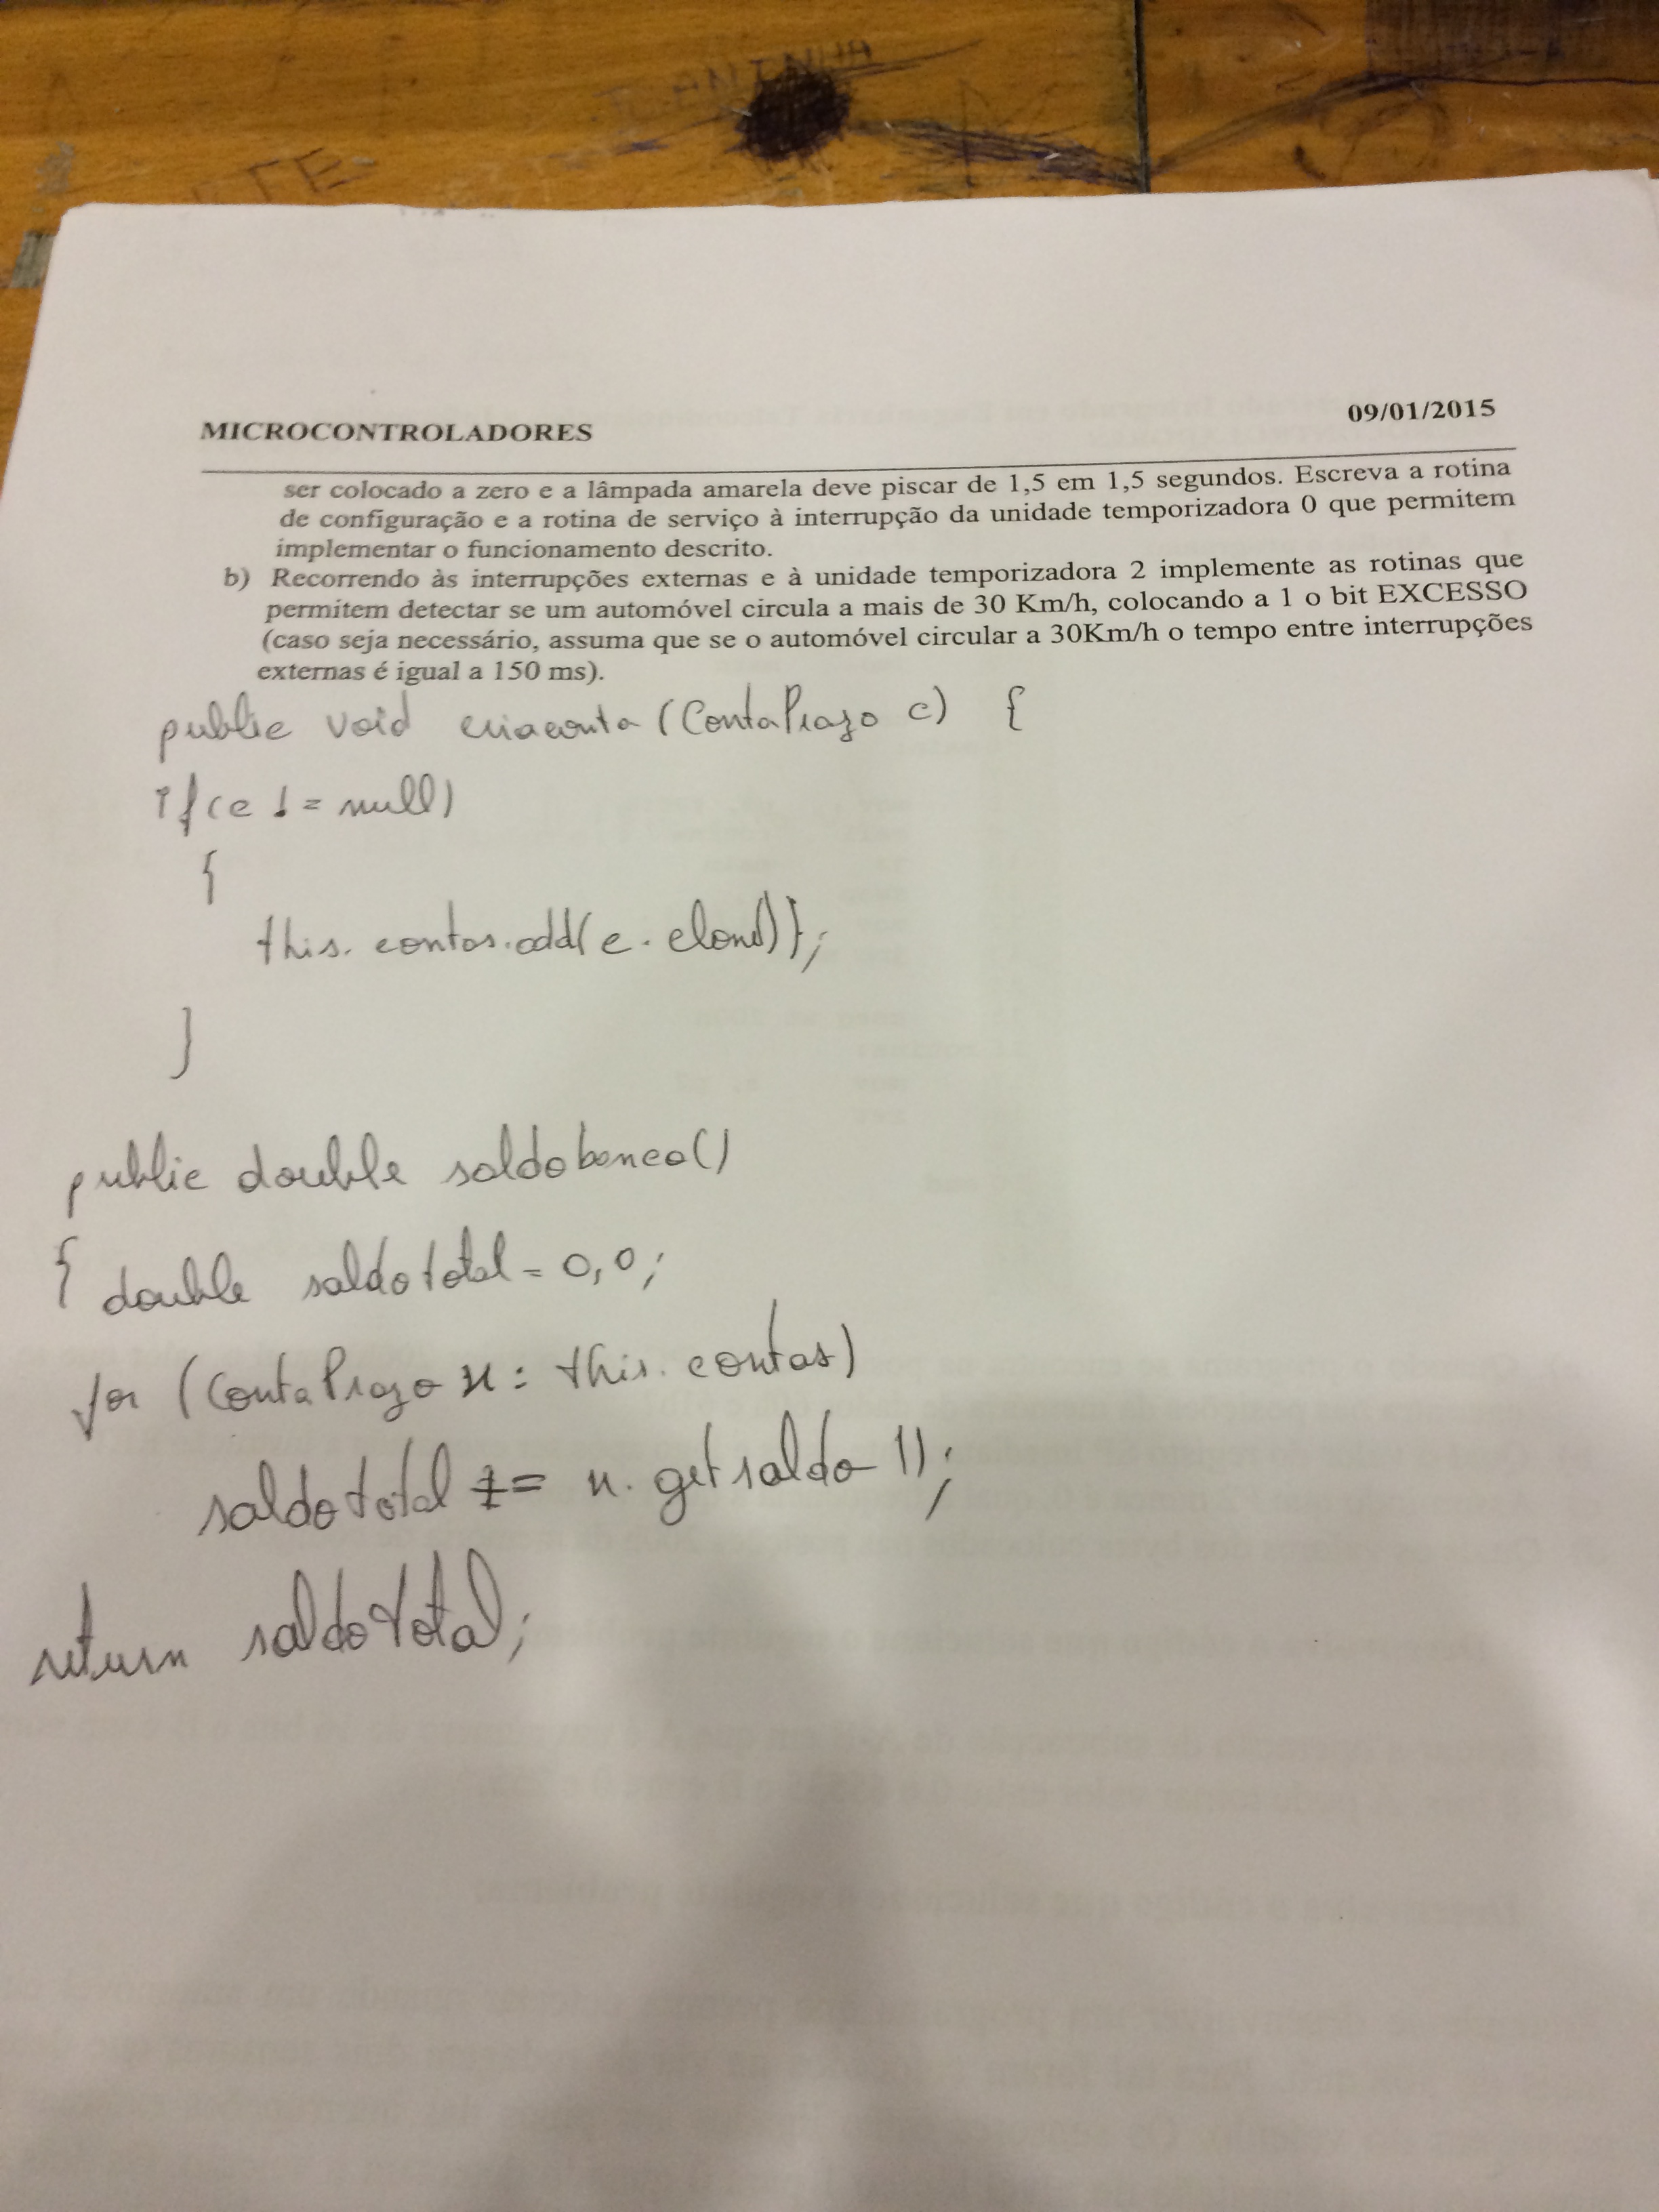 MICROCONTROLADORES
09/01/2015
ser colocado a zero e a lâmpada amarela deve piscar de 1,5 em 1,5 segundos. Escreva a rotina
de configuração e a rotina de serviço à interrupção da unidade temporizadora 0 que permitem
implementar o funcionamento descrito.
b) Recorrendo às interrupções externas e à unidade temporizadora 2 implemente as rotinas que
permitem detectar se um automóvel circula a mais de 30 Km/h, colocando a 1 o bit EXCESSO
(caso seja necessário, assuma que se o automóvel circular a 30Km/h o tempo entre interrupções
externas é igual a 150 ms).
public void criaconta (ContaPrazo c) {
if(c != null)
{
this.contas.add(c.clone());
}
public double saldobanco()
{ double saldototal = 0,0;
for (ContaPrazo x : this.contas)
saldototal += x.getsaldo ();
return saldototal;